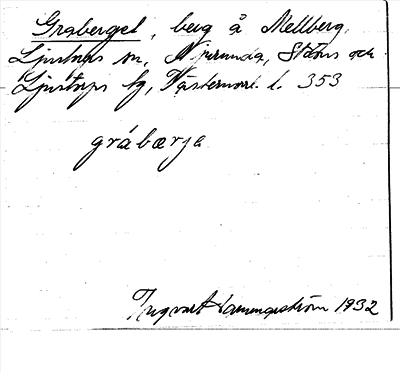 Graberget, berg å Mellberg,
Ljustorps sn, Njurunda, Sköns och
Ljustorps tg, Västernorrl. l. 353
gråbærja
Yngvart Hammarström 1932